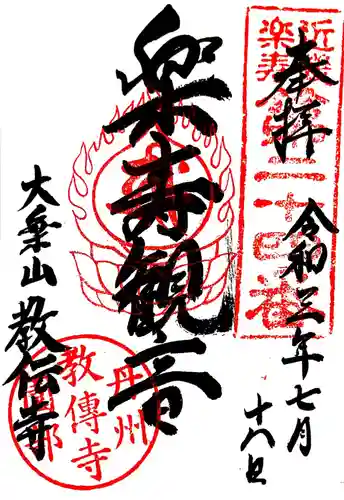 奉拝
令和三年七月
十八日
近畿
楽寿
第二十四番
楽寿観音
大乗山
教伝寺
丹州
教傳寺